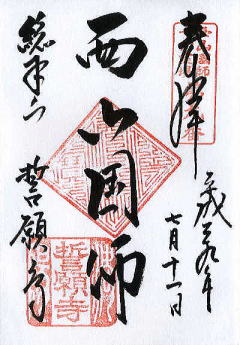 奉拝
平成二十九年
七月十一日
西山国師
総本山
誓願寺
誓願寺